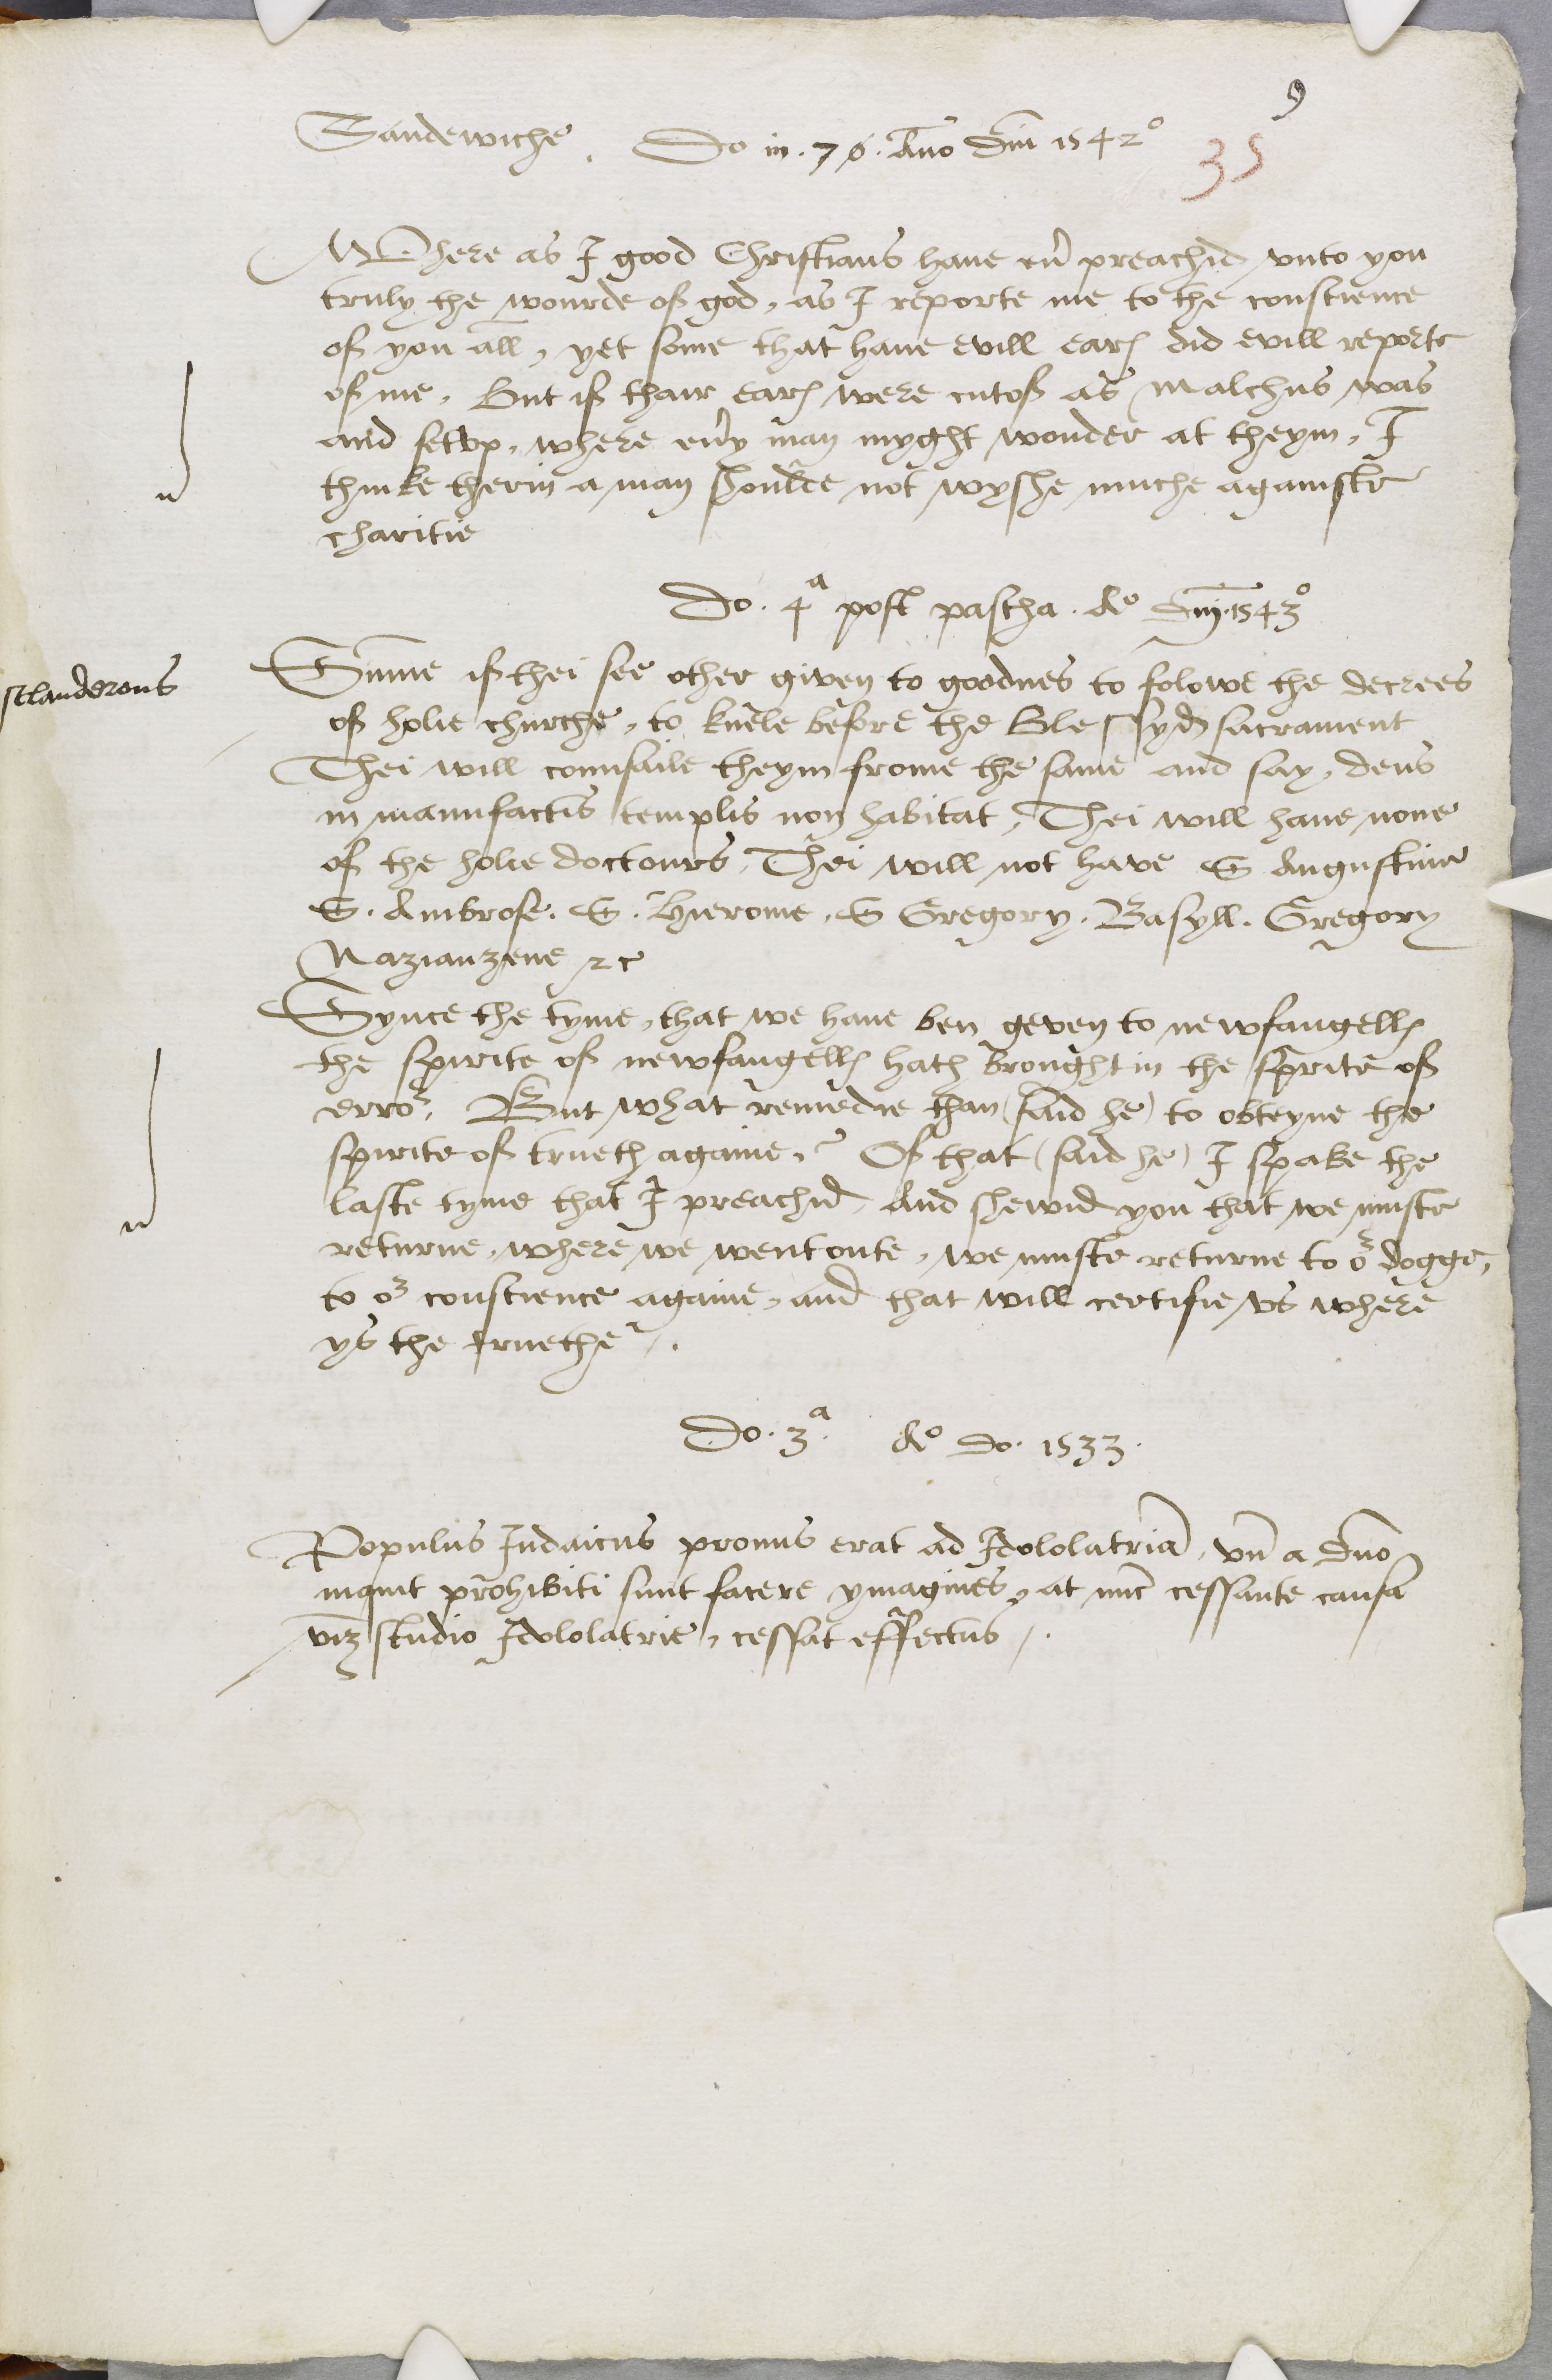 9
Sandewiche. Do in. 70. Ano Dni 1542°
35
Where as I good Christians haue eu9 preachid vnto you
truly the wourde of god, as I reporte me to the conscience
of you all, yet some that haue evill eares did evill reporte
of me. But if thair eares were cutof as Malchus was
and settvp, where eu9y man myght wonder at theym, I
thinke therin a man shoulde not wyshe muche againste
charitie
Do. 4a post pascha. Ao Dni. 1543°
sclanderous
Summe if thei see other given to goodnes to folowe the decrees
of holie churche, to knele before the Blessyd sacrament
Thei will counsaile theym frome the same and say, deus
in manufactis templis non habitat, Thei will haue none
of the holie doctours, Thei will not have S Augustine
S. Ambrose. S. Hierome, S Gregory. Basyll. Gregory
Nazianzene &c
Synce the tyme, that we haue ben geven to newfangells
the spirite of newfangells hath brought in the sprite of
erro^r. But what remedie than (said he) to obteyne the
spirite of trueth againe? Of that (said he) I spake the
laste tyme that I preachid, And shewid you that we muste
returne, where we went oute, we muste returne to o^r dogge,
to o^r conscience againe, and that will certifie vs where
ys the truethe.
Do. 3a. Ao do. 1533.
Populus Iudaicus pronus erat ad Idololatriā, vñ a Dño
inquit prohibiti sunt facere ymagines, at nūc cessante causa
viz studio Idololatrie, cessat effectus.